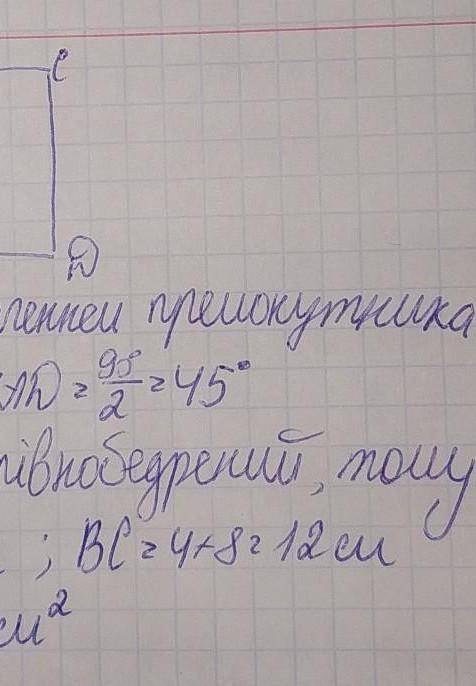 C
D
прямокутника
AD = 90°/2 = 45°
рівнобедрений, тому
; BC = 4+8 = 12 см
см²